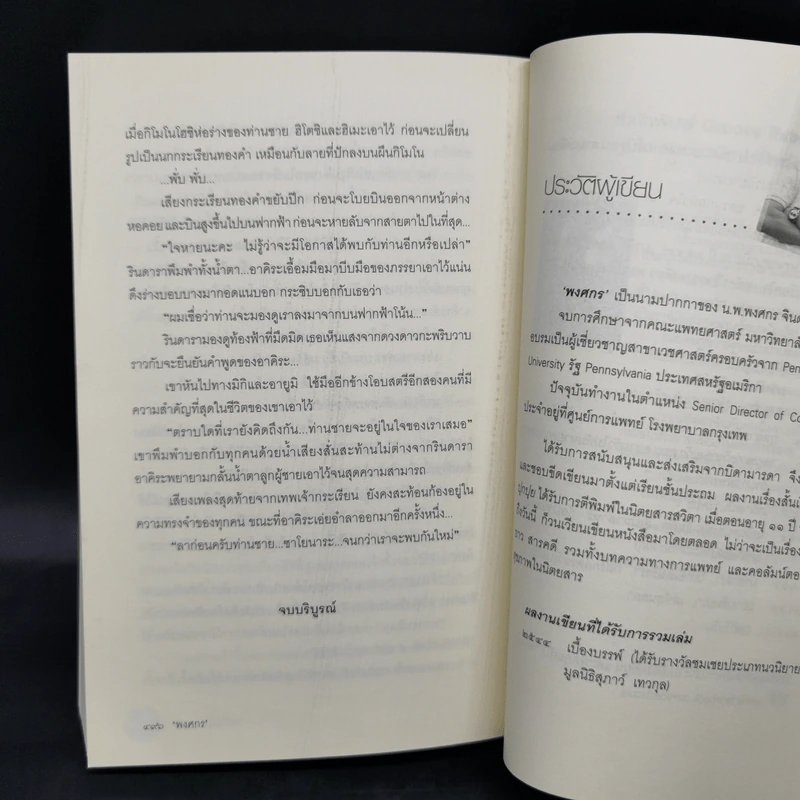 เมื่อกิโมโนโฮชิห่อร่างของท่านชาย ฮิโตชิและฮิเมะเอาไว้ ก่อนจะเปลี่ยน
รูปเป็นนกกระเรียนทองคำ เหมือนกับลายที่ปักลงบนผืนกิโมโน
...พั่บ พั่บ...
เสียงกระเรียนทองคำขยับปีก ก่อนจะโบยบินออกจากหน้าต่าง
หอคอย และบินสูงขึ้นไปบนฟากฟ้า ก่อนจะหายลับจากสายตาไปในที่สุด...
“ใจหายนะคะ ไม่รู้ว่าจะมีโอกาสได้พบกับท่านอีกหรือเปล่า”
รินดาราพึมพำทั้งน้ำตา...อาคิระเอื้อมมือมาบีบมือของภรรยาเอาไว้แน่น
ดึงร่างบอบบางมากอดแนบอก กระซิบบอกกับเธอว่า
“ผมเชื่อว่าท่านจะมองดูเราลงมาจากบนฟากฟ้าโน้น...”
รินดารามองดูท้องฟ้าที่มืดมิด เธอเห็นแสงจากดวงดาวกะพริบวาบ
ราวกับจะยืนยันคำพูดของอาคิระ...
เขาหันไปทางมิกิและอายูมิ ใช้มืออีกข้างโอบสตรีอีกสองคนที่มี
ความสำคัญที่สุดในชีวิตของเขาเอาไว้
“ตราบใดที่เรายังคิดถึงกัน...ท่านชายจะอยู่ในใจของเราเสมอ”
เขาพึมพำบอกกับทุกคนด้วยน้ำเสียงสั่นสะท้านไม่ต่างจากรินดารา
อาคิระพยายามกลั้นน้ำตาลูกผู้ชายเอาไว้จนสุดความสามารถ
เสียงเพลงสุดท้ายจากเทพเจ้ากระเรียน ยังคงสะท้อนก้องอยู่ใน
ความทรงจำของทุกคน ขณะที่อาคิระเอ่ยอำลาออกมาอีกครั้งหนึ่ง...
“ลาก่อนครับท่านชาย...ซาโยนาระ...จนกว่าเราจะพบกันใหม่”
จบบริบูรณ์
๔๙๖ ‘พงศกร’
ประวัติผู้เขียน
‘พงศกร’ เป็นนามปากกาของ น.พ.พงศกร จินดา
จบการศึกษาจากคณะแพทยศาสตร์ มหาวิทยาลั
อบรมเป็นผู้เชี่ยวชาญสาขาเวชศาสตร์ครอบครัวจาก Pen
University รัฐ Pennsylvania ประเทศสหรัฐอเมริกา
ปัจจุบันทำงานในตำแหน่ง Senior Director of Co
ประจำอยู่ที่ศูนย์การแพทย์ โรงพยาบาลกรุงเทพ
ได้รับการสนับสนุนและส่งเสริมจากบิดามารดา จึง
และขอบขีดเขียนมาตั้งแต่เรียนชั้นประถม ผลงานเรื่องสั้นเ
ปุกปุย ได้รับการตีพิมพ์ในนิตยสารสวิตา เมื่อตอนอายุ ๑๑ ปี
ถึงวันนี้ ก็วนเวียนเขียนหนังสือมาโดยตลอด ไม่ว่าจะเป็นเรื่อง
ยาว สารคดี รวมทั้งบทความทางการแพทย์ และคอลัมน์ตอ
สุขภาพในนิตยสาร
ผลงานเขียนที่ได้รับการรวมเล่ม
๒๕๔๔ เบื้องบรรพ์ (ได้รับรางวัลชมเชยประเภทนวนิยาย
มูลนิธิสุภาว์ เทวกุล)